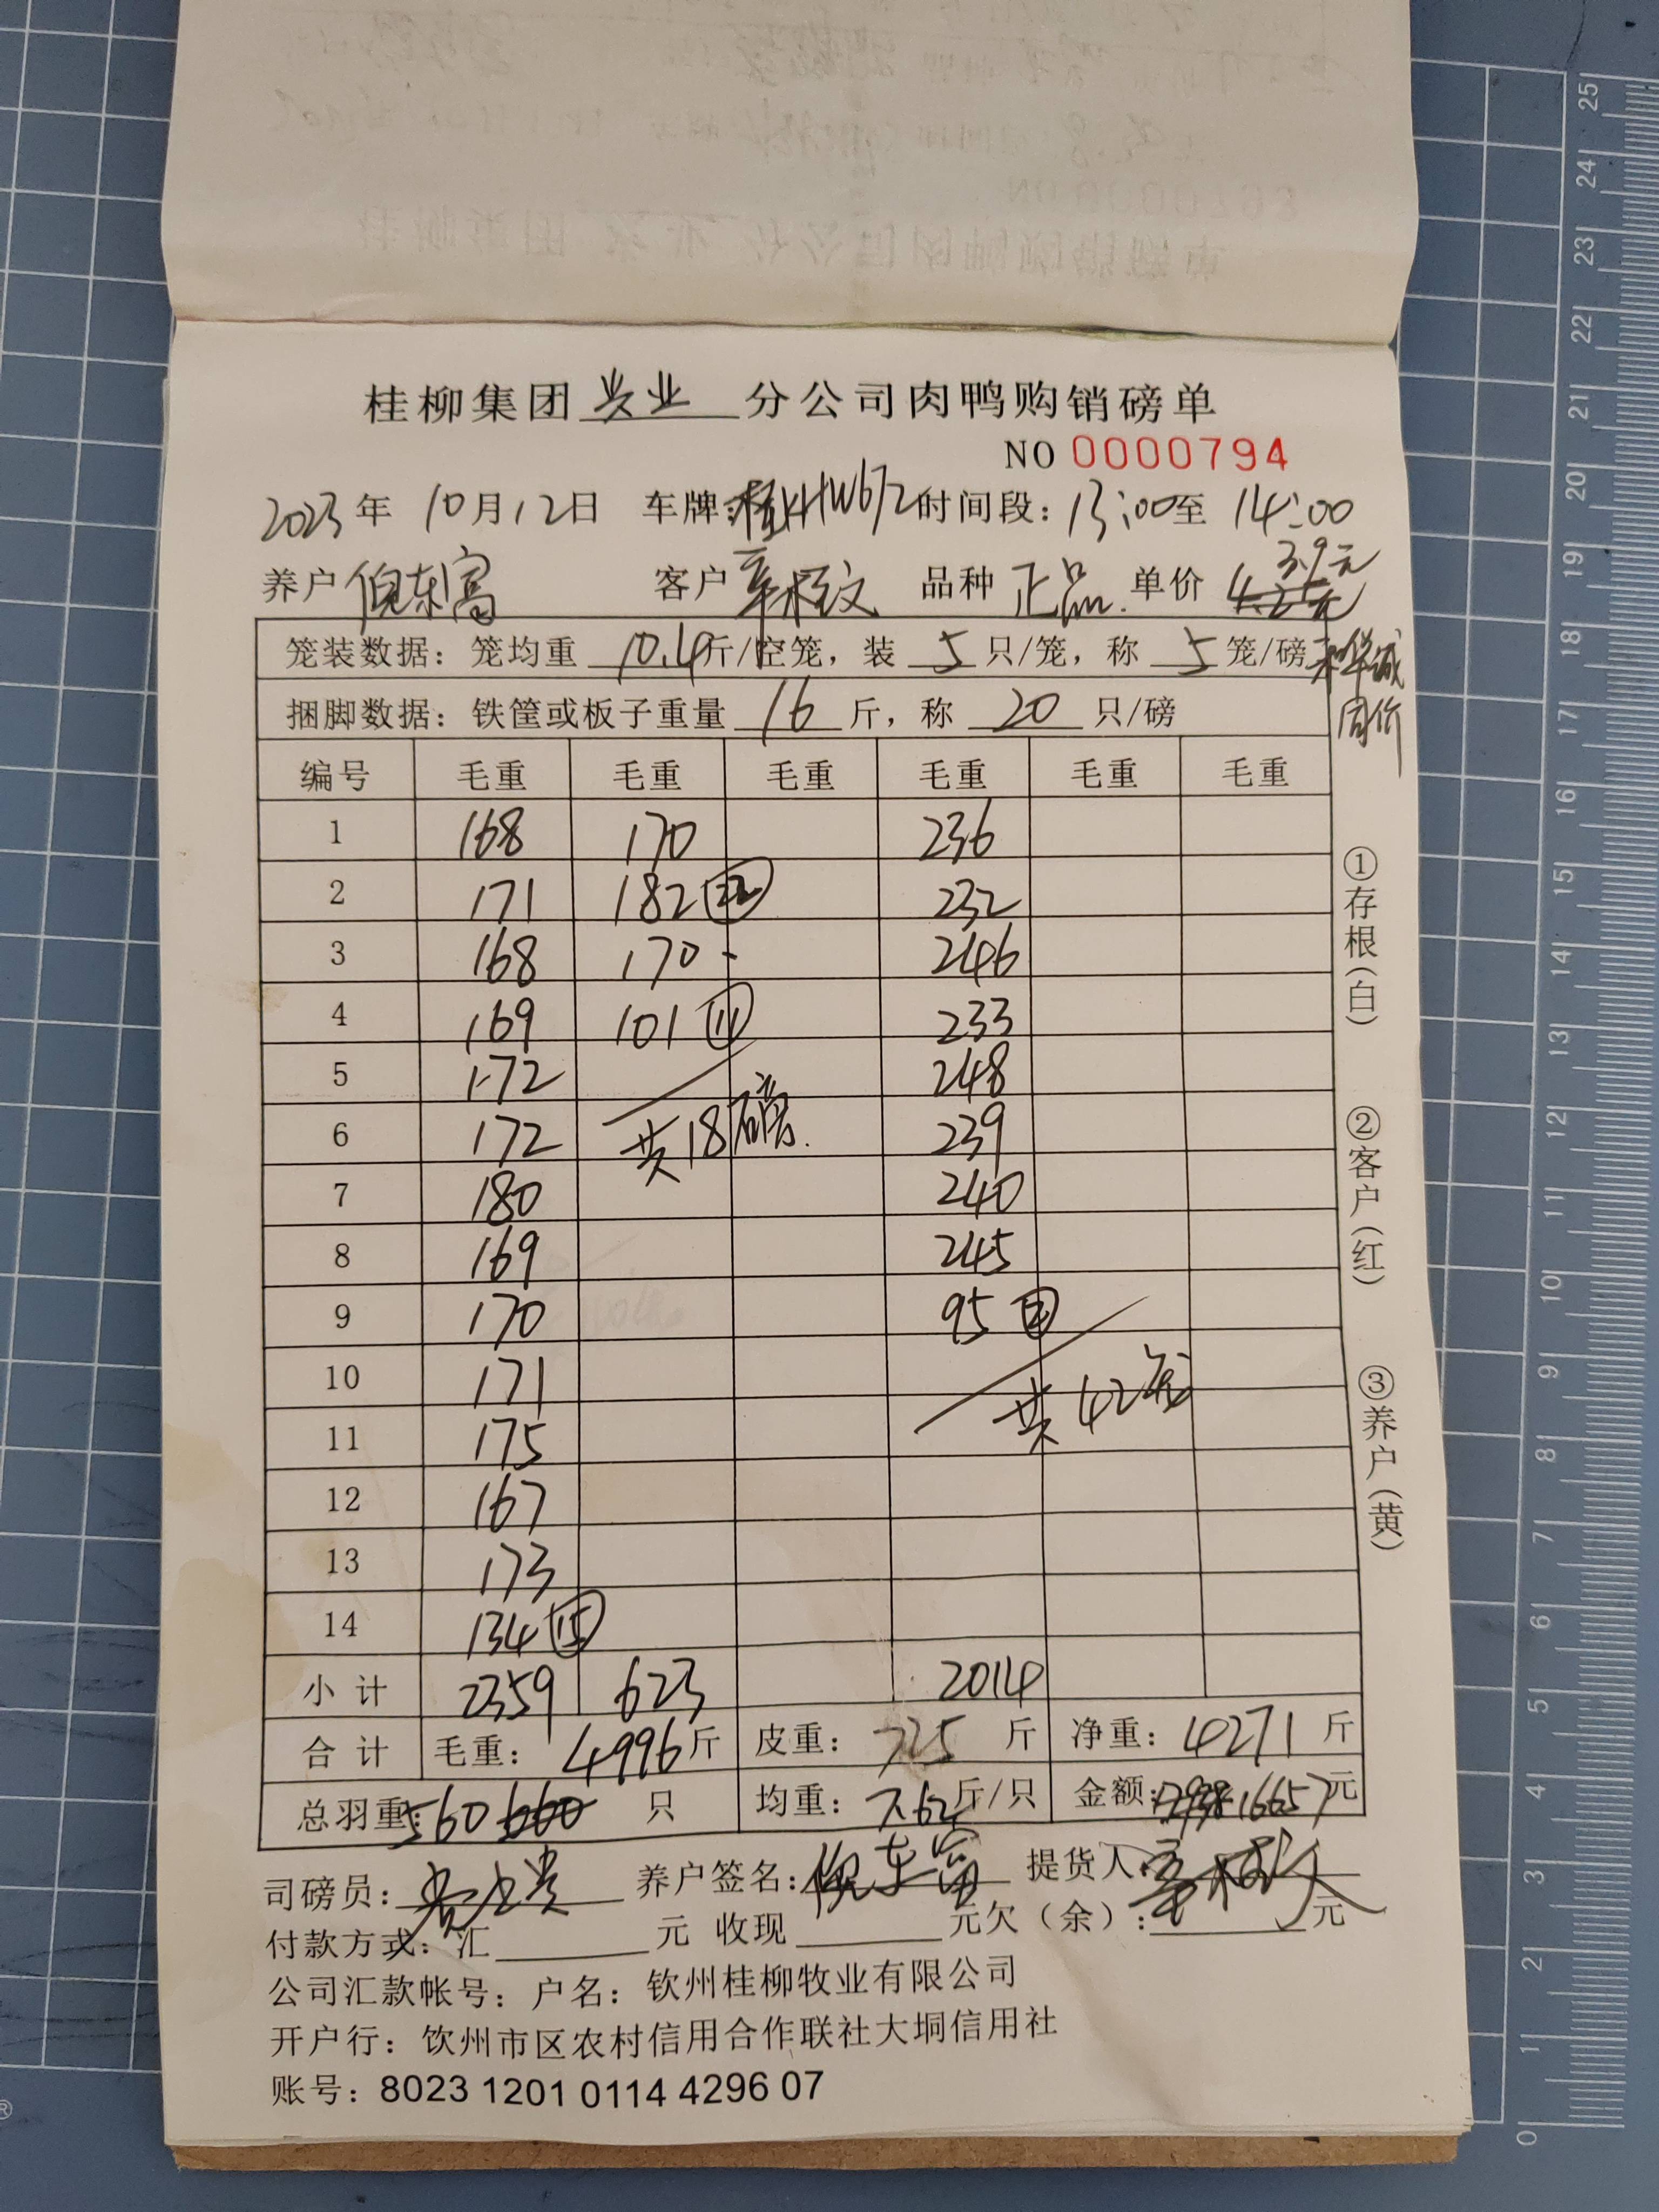 桂柳集团 兴业 分公司肉鸭购销磅单
NO 0000794
2023年 10月12日 车牌:桂KHW672 时间段: 13:00至 14:00
3.9元
养户 倪东富 客户 品种 正品. 单价 4.25元
笼装数据: 笼均重 10.4斤/空笼, 装 5 只/笼, 称 5 笼/磅 华诚
捆脚数据: 铁筐或板子重量 16 斤, 称 20 只/磅 同价
编号 毛重 毛重 毛重 毛重 毛重 毛重
1 168 170 236
2 171 182 22 232
3 168 170 246
4 169 101 11 233
5 172 248
6 172 共18磅. 239
7 180 240
8 169 245
9 170 95
10 171 共42笼
11 175
12 167
13 173
14 134 15
小 计 2359 623 2014
合 计 毛重: 4996斤 皮重: 725 斤 净重: 4271 斤
总羽重: 560 660 只 均重: 7.62斤/只 金额: 16657元
司磅员: 养户签名: 倪东富 提货人:
付款方式: 汇 元 收现 元欠(余): 元
公司汇款帐号: 户名: 钦州桂柳牧业有限公司
开户行: 钦州市区农村信用合作联社大垌信用社
账号: 8023 1201 0114 4296 07
①存根(白)
②客户(红)
③养户(黄)
25
24
23
22
21
20
19
18
17
16
15
14
13
12
11
10
9
8
7
6
5
4
3
2
1
0